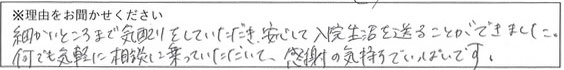 ※理由をお聞かせください
細かいところまで気配りをしていただき、安心して入院生活を送ることができました。
何でも気軽に相談に乗っていただいて、感謝の気持ちでいっぱいです。